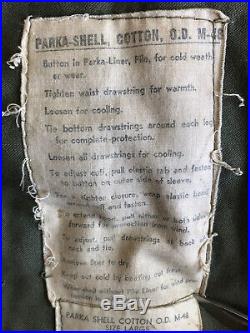 PARKA-SHELL, COTTON, O.D. M-48
Button in Parka-Liner, Pile, for cold weath-
er wear.
Tighten waist drawstring for warmth.
Loosen for cooling.
Tie bottom drawstrings around each leg
for complete protection.
Loosen all drawstrings for cooling.
To adjust cuff, pull elastic tab and fasten
to button on outer side of sleeve,
closure, wrap elastic band
button on
To extend hood, pull
forward for protection from wind.
To adjust, pull drawstrings at
neck and tie.
Remove liner to dry.
Keep out cold by keeping out
shell without Pile Liner for wind
PARKA SHELL COTTON O.D. M-48
SIZE LARGE